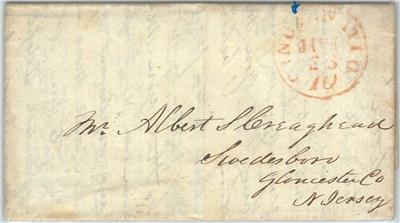 CINCINNATI O
23
10
Mr. Albert S Creaghead
Swedesboro
Gloucester Co
N Jersey